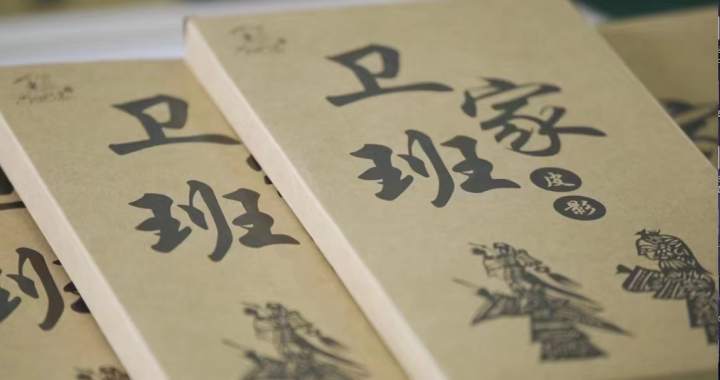 卫家
班
皮
影
卫
班
班